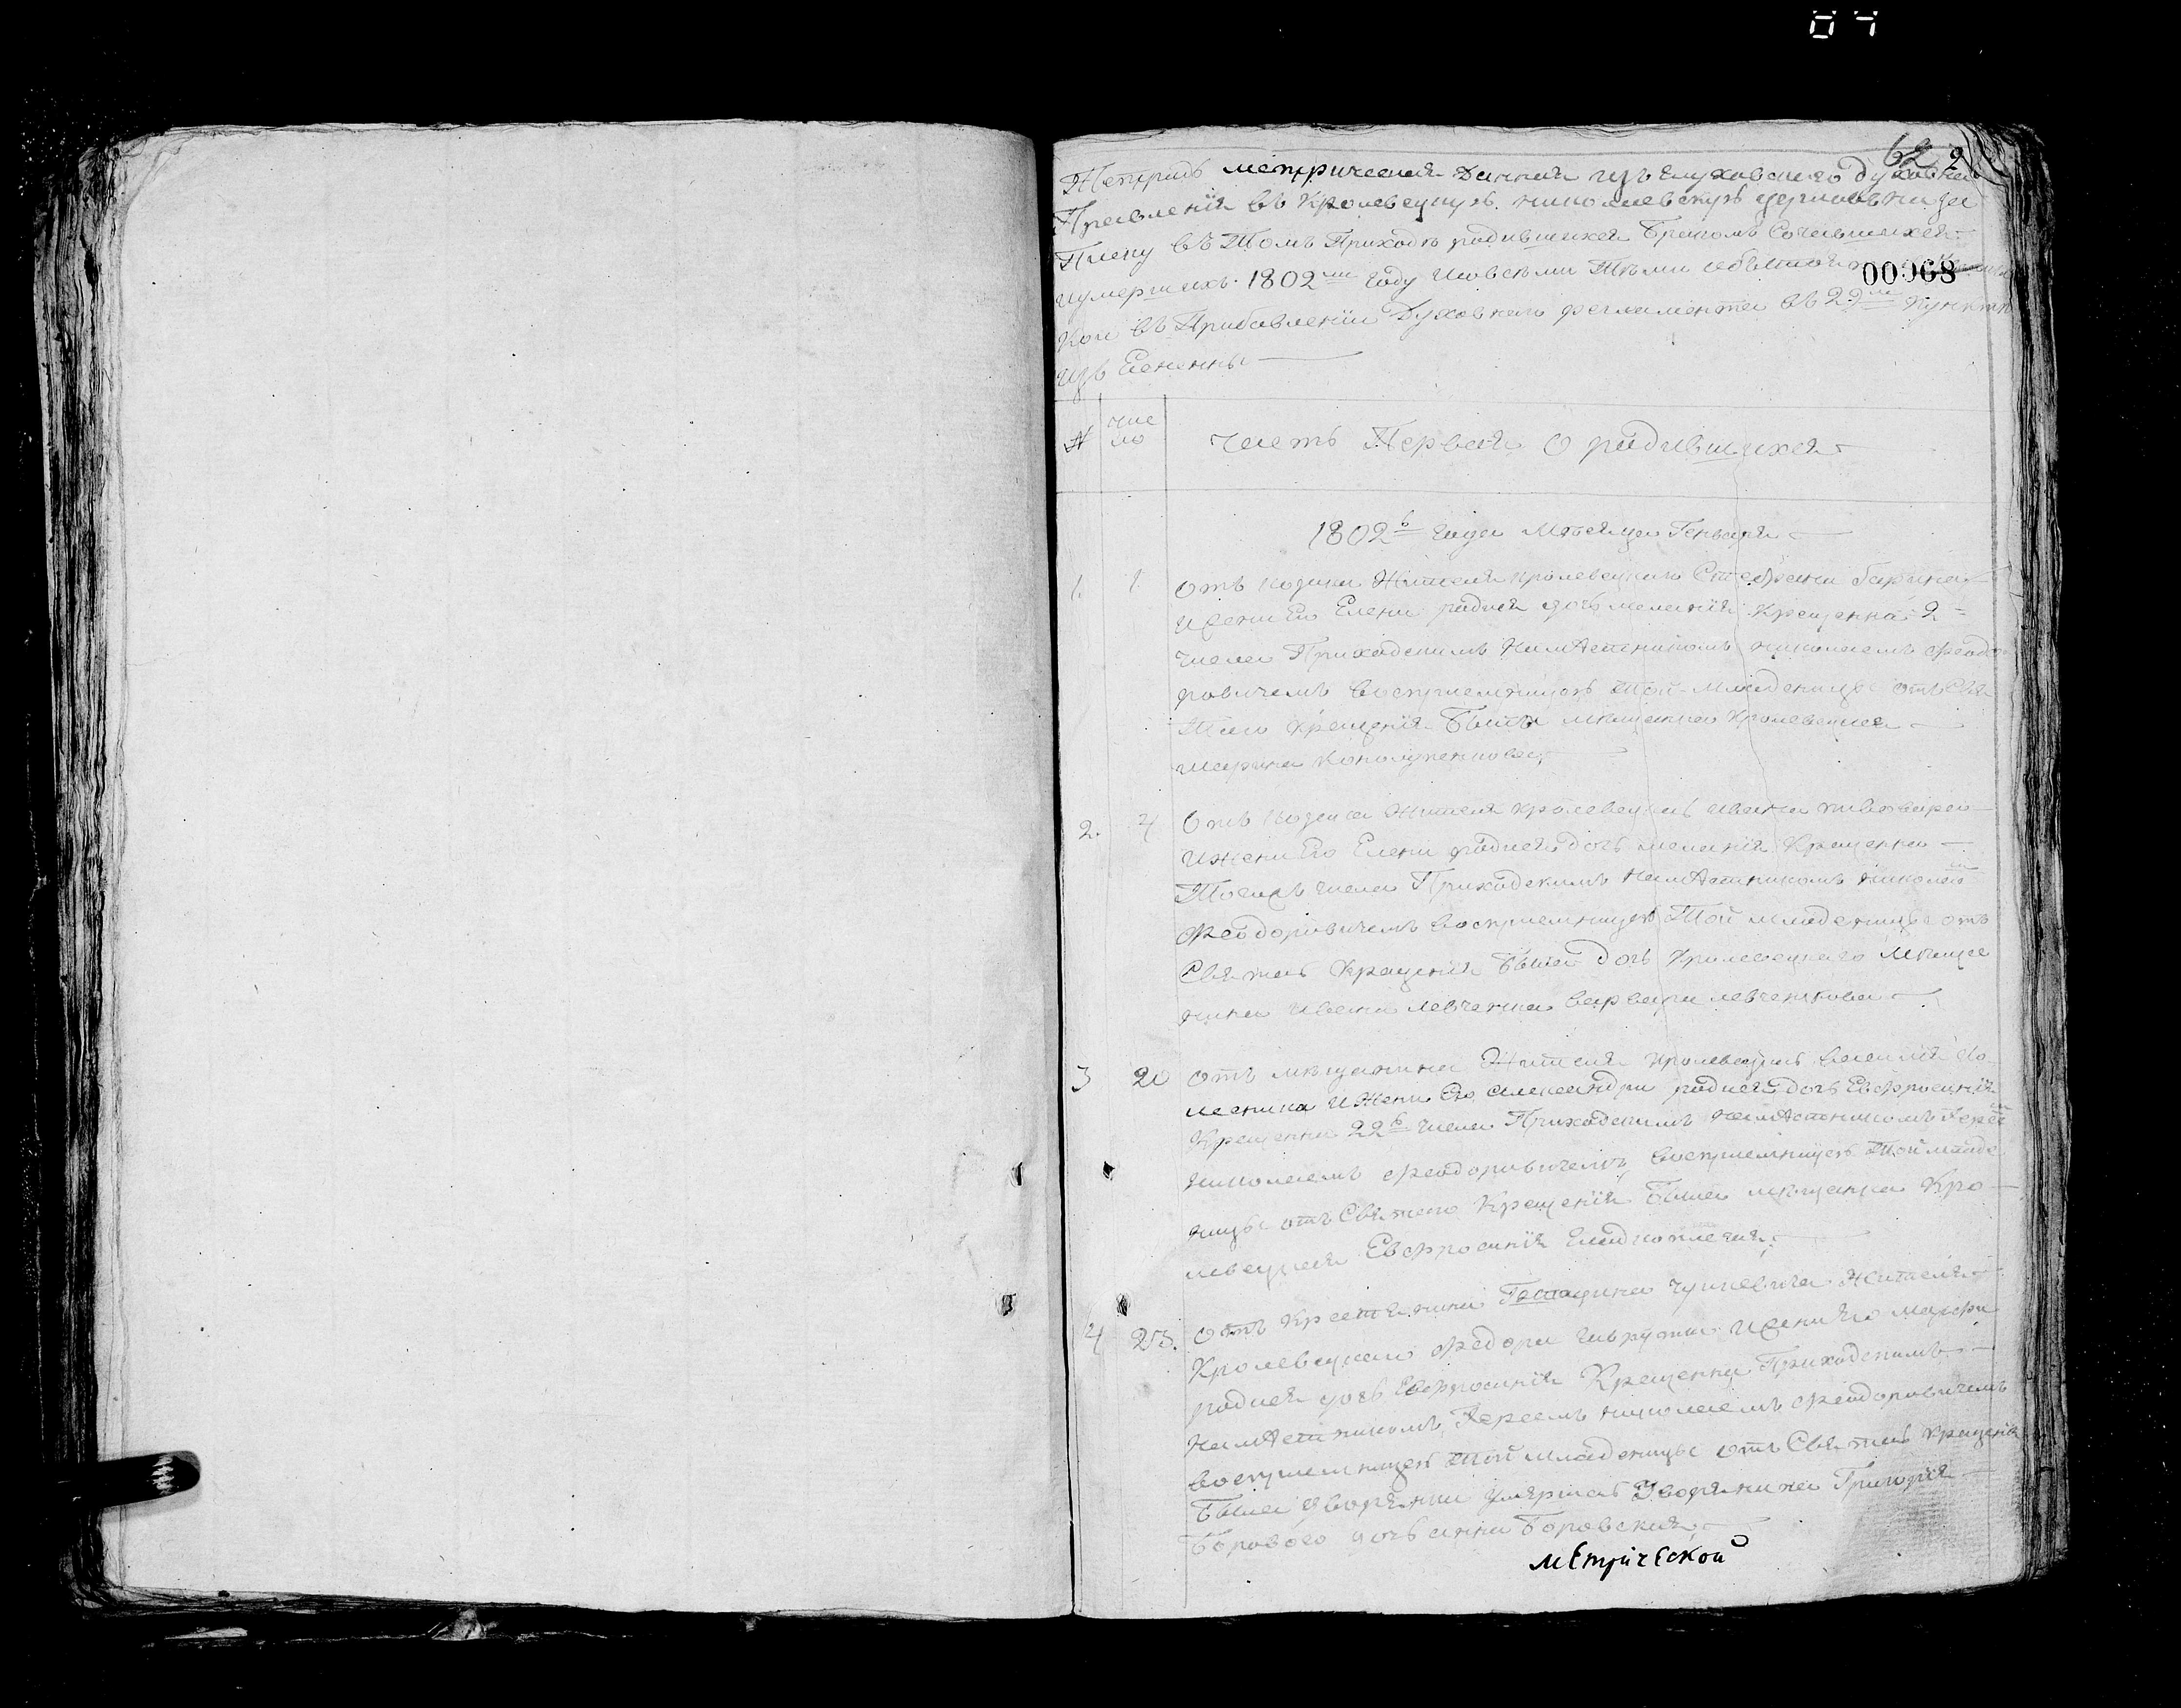 62 2
Тетрадь метрическая данная изъ Глуховского духовнаго
Правления въ Кролевецкую николаевскую церковь на за
писку въ томъ приходе родившихся браком сочетавшихся
и умершихъ 1802 году и о всеми теми
00968
кои въ Прибавлении Духовнаго регламента въ 29м пункте
изъ Еснены
№ число Часть Первая О родившихся
1802 года Месяца Генваря
1. 1 отъ козака жителя кролевецкаго Стефана
и жени Его Елени родися дочь мелания крещенна 2
числа Приходскимъ намѣстникомъ николаемъ феодо
ровичемъ восприемницею той младеницы отъ свя
таго крещения была мещанка кролевецкая
марина
2. 4 Отъ козака жителя кролевецкаго ивана пивовара
и жени Его Елени родися дочь мелания крещенна
того ж числа Приходскимъ намѣстникомъ николаем
феодоровичемъ восприемницею той младеницы отъ
святаго крещения была дочь кролевецкаго мѣща
нина ивана левченка варвара левченкова
3 20 отъ мѣщанина жителя кролевецкаго василия ко
лесника и жени Его александри родися дочь Евфросиния
крещенна 22 числа Приходскимъ намѣстникомъ Iереем
николаемъ феодоровичемъ восприемницею той младе
ницы отъ святаго крещения была мѣщанка кро
левецкая Евфросиния
4 25. отъ крестянина жителя
кролевецкаго федора и жени Его марфи
родися дочь Евфросиния крещенна Приходскимъ
намѣстникомъ Iереемъ николаемъ феодоровичемъ
восприемницею той младеницы отъ святаго крещения
была дворянки умершаго дворянина Григория
Борового дочь анна Боровская
метрической